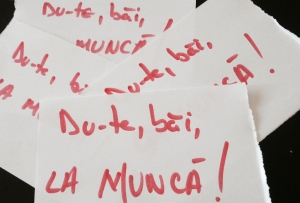 Du-te, băi,
MUNCĂ!
Du-te, băi,
LA M
Du-te, băi,
CĂ!
Du-te, băi,
LA MUNCĂ!